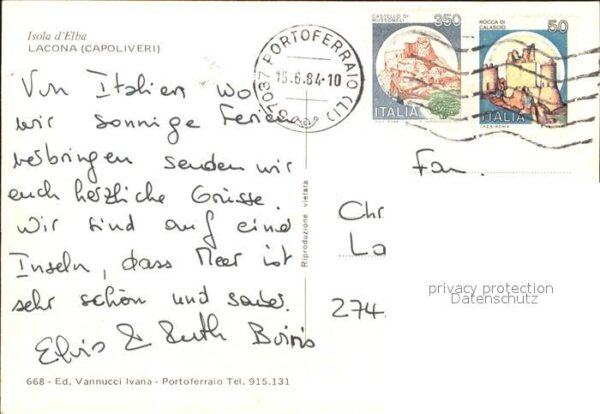 Isola d'Elba
LACONA (CAPOLIVERI)
Von Italien wo
wir sonnige Ferien
verbringen senden wir
euch herzliche Grüsse.
Wir sind auf eine
Inseln, dass Meer ist
sehr schön und sauber.
Elvis & Ruth
668 - Ed. Vannucci Ivana - Portoferraio Tel. 915.131
Riproduzione vietata
57037 PORTOFERRAIO (LI)
15.6.84-10
CASTELLO DI
MUSSOMELI
350
ITALIA
ROCCA DI
CALASCIO
50
ITALIA
Fam.
Chr
La
274
privacy protection
Datenschutz